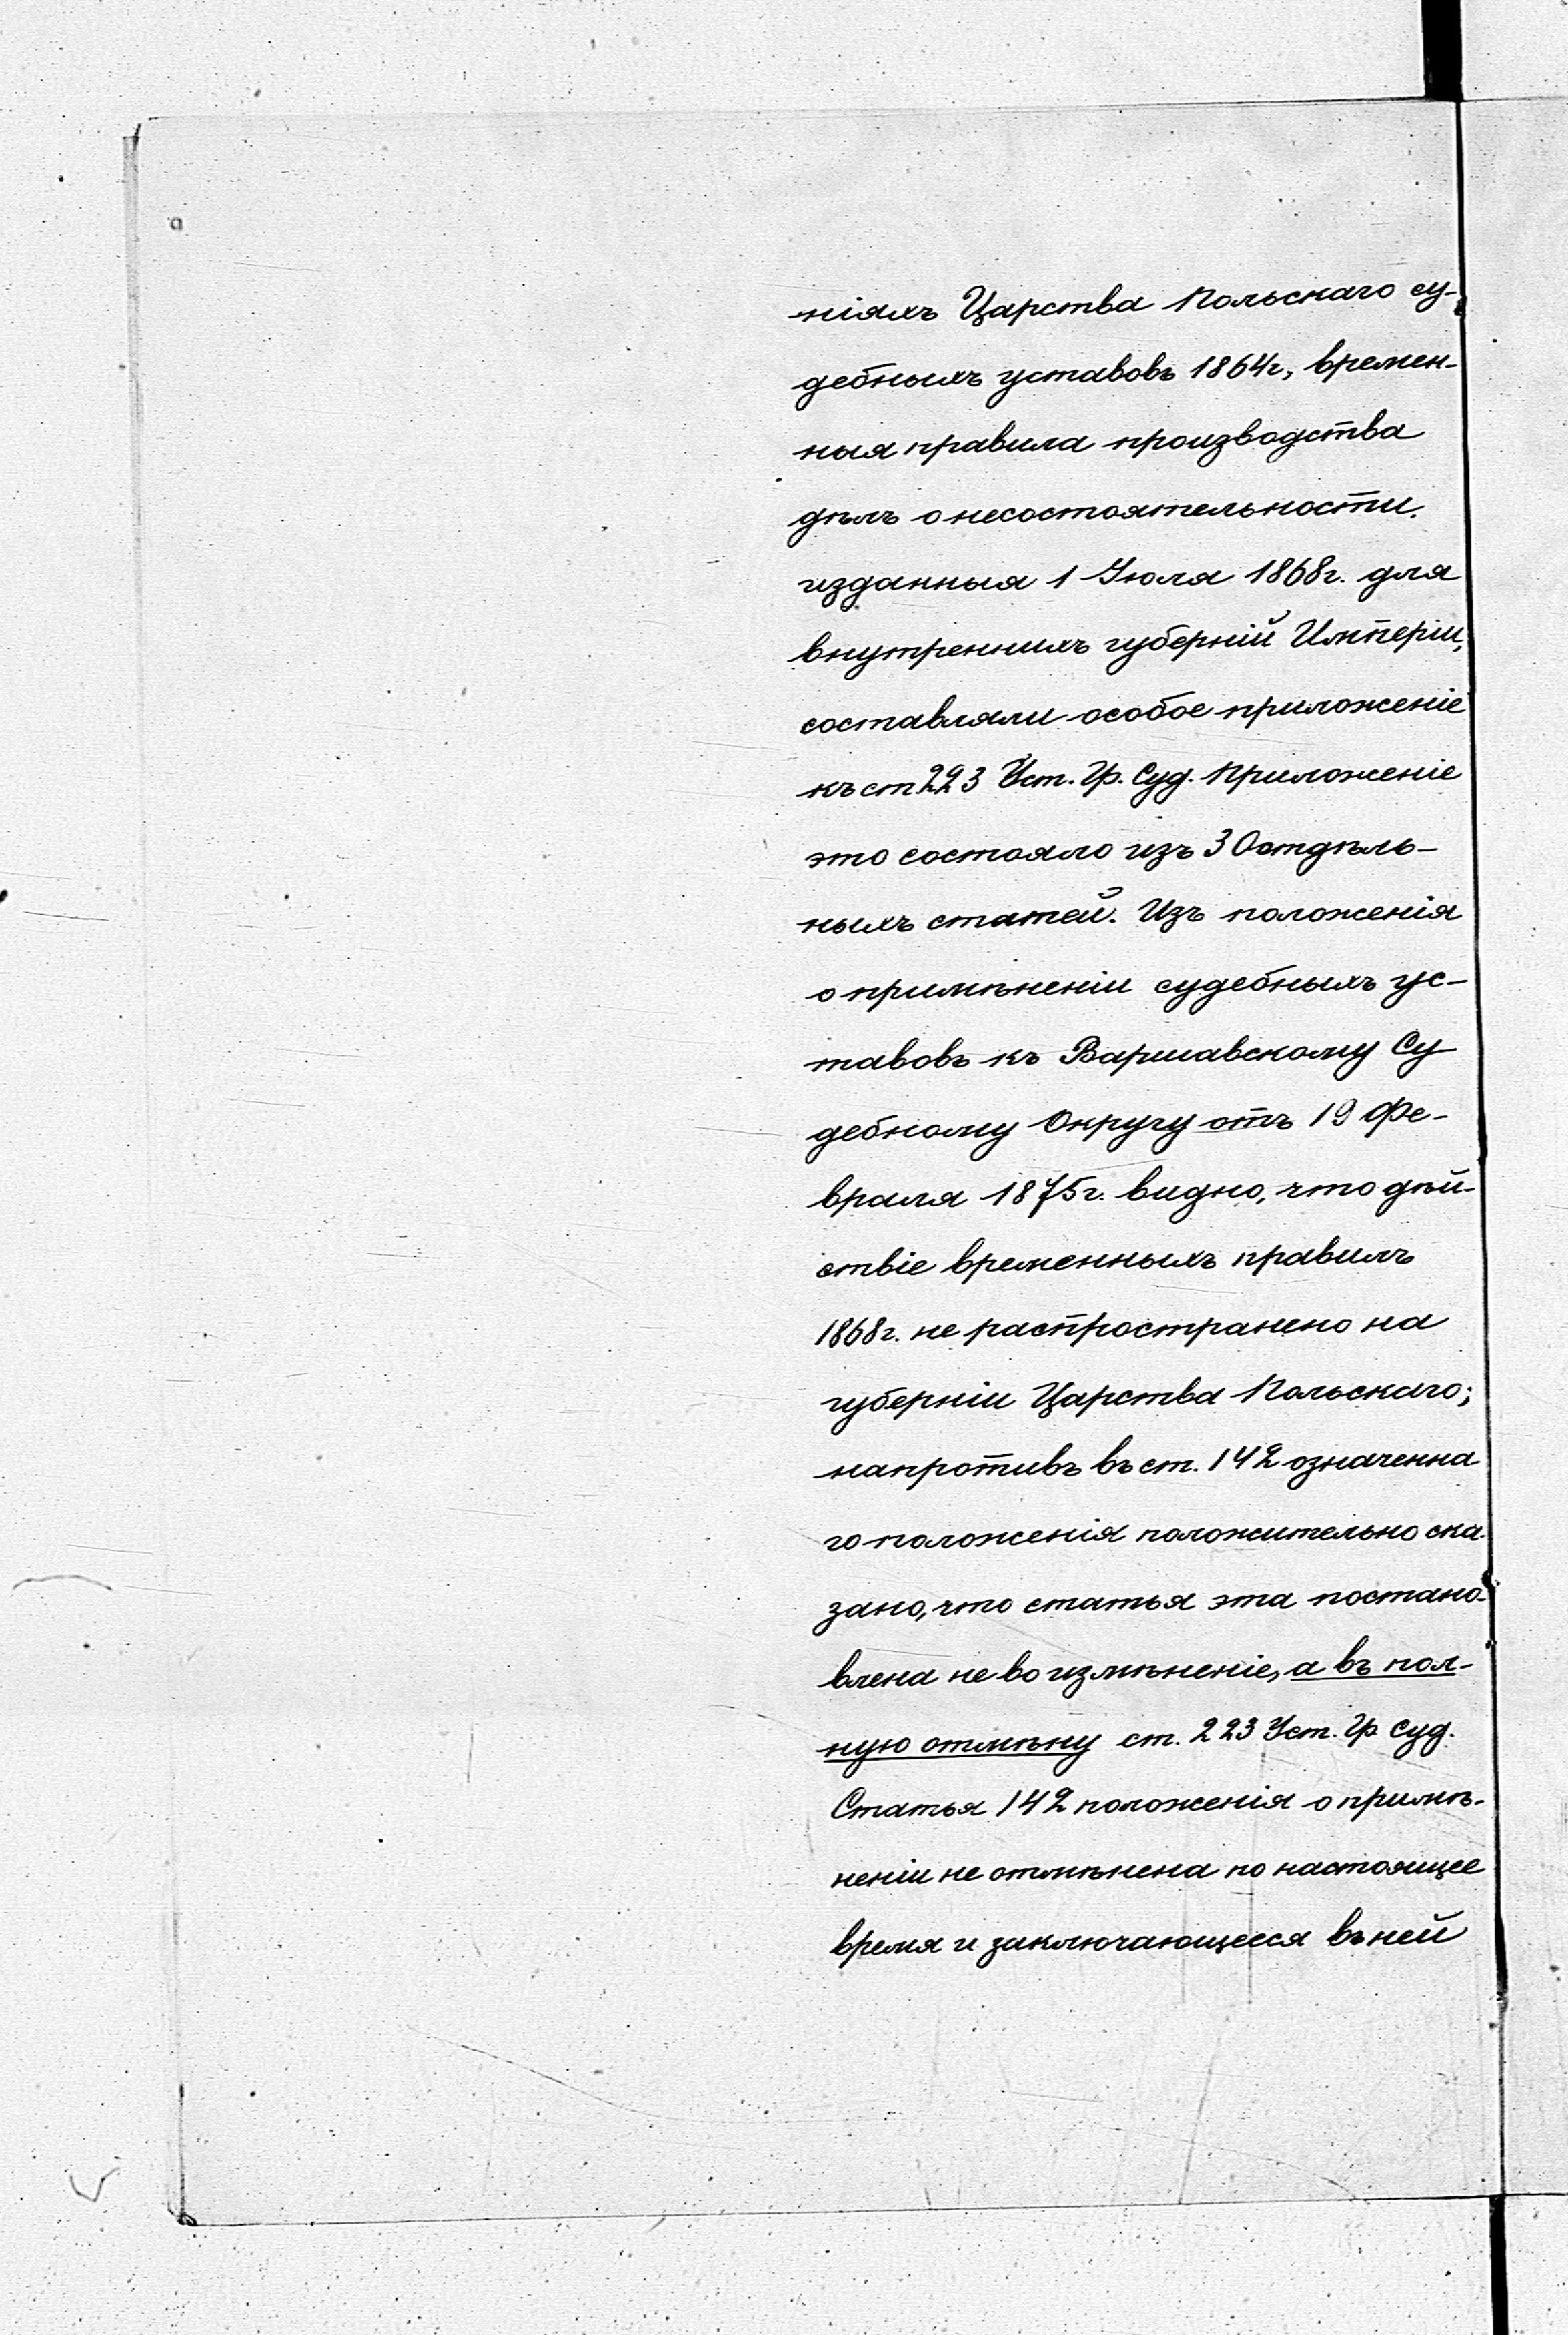 ніяхъ Царства Польскаго су-
дебныхъ уставовъ 1864г., времен-
ныя правила производства
дѣлъ о несостоятельности,
изданныя 1 Июля 1868г. для
внутреннихъ губерній Имперіи,
составляли особое приложеніе
къ ст 223 Уст. Гр. Суд. Приложеніе
это состояло изъ 30 отдѣль-
ныхъ статей. Изъ положенія
о примѣненіи судебныхъ ус-
тавовъ къ Варшавскому Су
дебному Округу отъ 19 Фе-
враля 1875г. видно, что дѣй-
ствіе временныхъ правилъ
1868г. не распространено на
губерніи Царства Польскаго;
напротивъ въ ст. 142 означенна
го положенія положительно ска-
зано, что статья эта постано-
влена не во измѣненіе, а въ пол-
ную отмѣну ст. 223 Уст. Гр Суд.
Статья 142 положенія о примѣ-
неніи не отмѣнена по настоящее
время и заключающееся въ ней